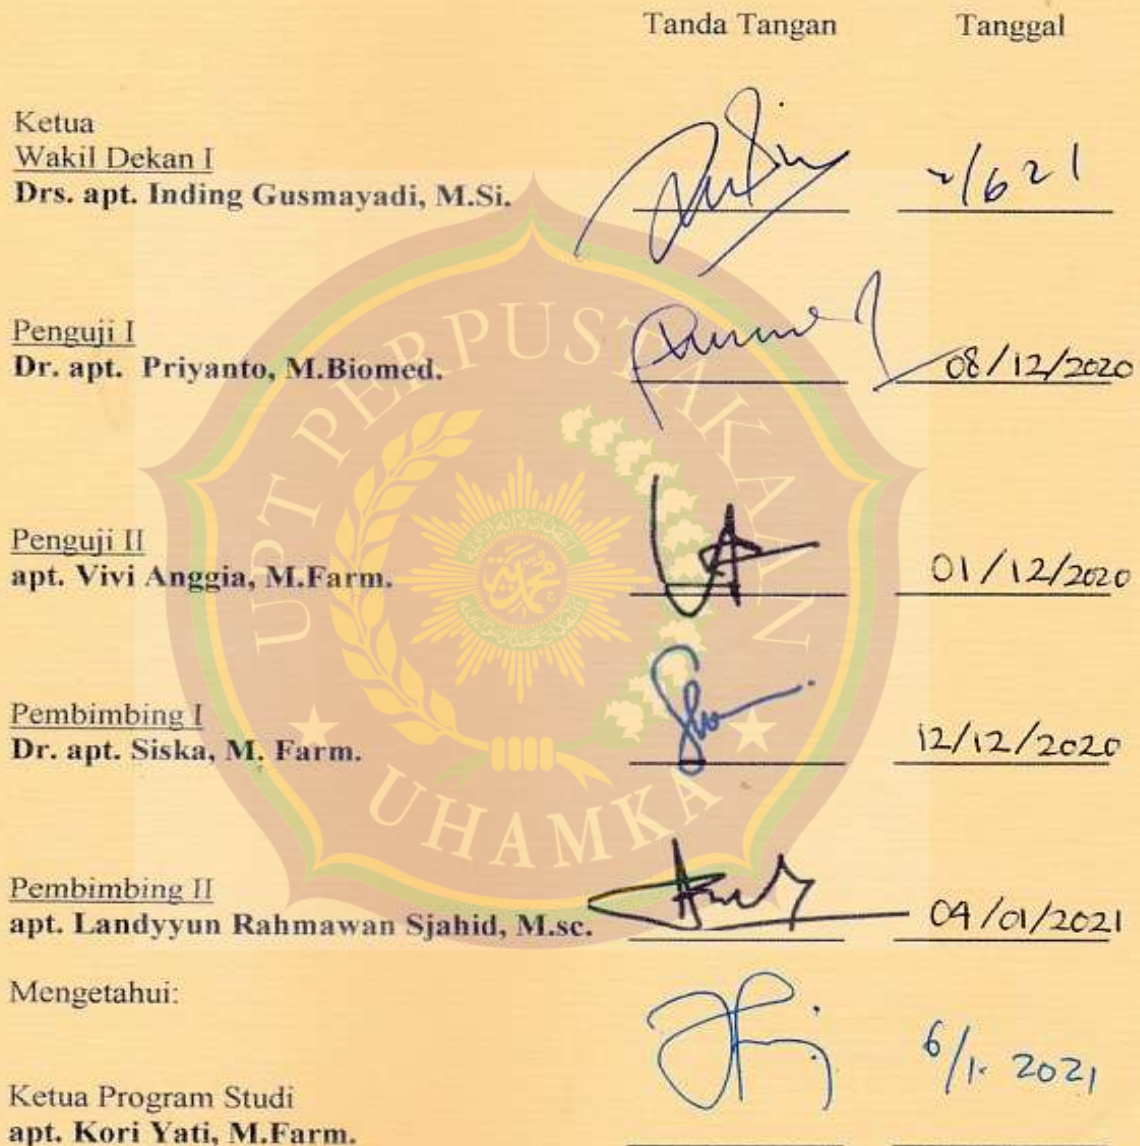 Tanda Tangan Tanggal
Ketua
Wakil Dekan I
Drs. apt. Inding Gusmayadi, M.Si. 2/6 21
Penguji I
Dr. apt. Priyanto, M.Biomed. 08/12/2020
Penguji II
apt. Vivi Anggia, M.Farm. 01/12/2020
Pembimbing I
Dr. apt. Siska, M. Farm. 12/12/2020
Pembimbing II
apt. Landyyun Rahmawan Sjahid, M.sc. 04/01/2021
Mengetahui:
6/1. 2021
Ketua Program Studi
apt. Kori Yati, M.Farm.
UPT PERPUSTAKAAN
UHAMKA